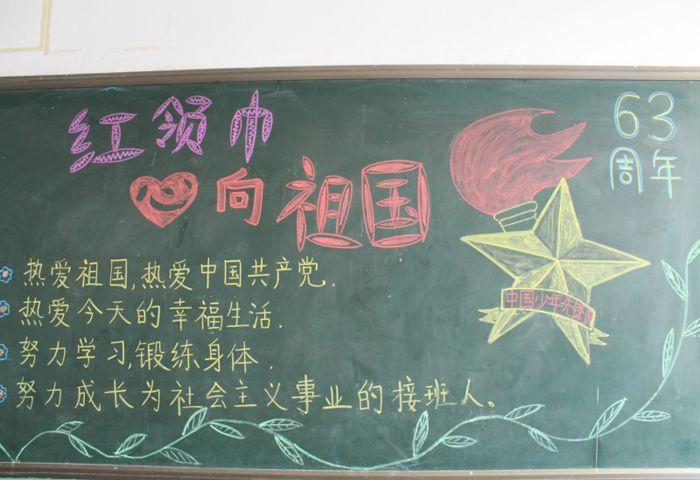 红领巾
心向祖国
63
周年
中国少年先锋队
热爱祖国,热爱中国共产党.
热爱今天的幸福生活.
努力学习,锻练身体.
努力成长为社会主义事业的接班人。